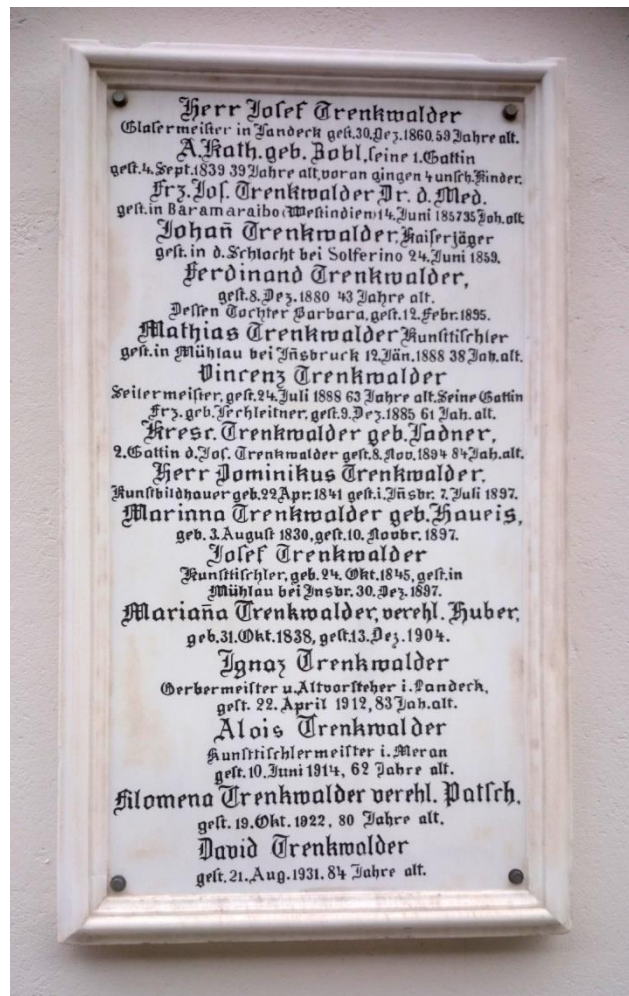 Herr Josef Trenkwalder
Glasermeister in Landeck gest. 30. Dez. 1860. 59 Jahre alt.
A. Kath. geb. Zobl, seine 1. Gattin
gest. 4. Sept. 1839 39 Jahre alt, voran gingen 4 unsch. Kinder.
Frz. Jos. Trenkwalder Dr. d. Med.
gest. in Baramaraibo (Westindien) 14. Juni 1857 35 Jah. alt
Johañ Trenkwalder, Kaiserjäger
gest. in d. Schlacht bei Solferino 24. Juni 1859.
Ferdinand Trenkwalder,
gest. 8. Dez. 1880 43 Jahre alt.
Dessen Tochter Barbara, gest. 12. Febr. 1895.
Mathias Trenkwalder Kunsttischler
gest. in Mühlau bei Iñsbruck 12. Jän. 1888 38 Jah. alt.
Vincenz Trenkwalder
Seilermeister, gest. 24. Juli 1888 63 Jahre alt. Seine Gattin
Frz. geb. Lechleitner, gest. 9. Dez. 1885 61 Jah. alt.
Kresc. Trenkwalder geb. Ladner,
2. Gattin d. Jos. Trenkwalder gest. 8. Nov. 1894 84 Jah. alt.
Herr Dominikus Trenkwalder,
Kunstbildhauer geb. 22 Apr. 1841 gest. i. Iñsbr. 7. Juli 1897.
Marianna Trenkwalder geb. Haueis,
geb. 3. August 1830, gest. 10. Novbr. 1897.
Josef Trenkwalder
Kunsttischler, geb. 24. Okt. 1845, gest. in
Mühlau bei Insbr. 30. Dez. 1897.
Mariaña Trenkwalder, verehl. Huber,
geb. 31. Okt. 1838, gest. 13. Dez. 1904.
Ignaz Trenkwalder
Gerbermeister u. Altvorsteher i. Landeck,
gest. 22. April 1912, 83 Jah. alt.
Alois Trenkwalder
Kunsttischlermeister i. Meran
gest. 10. Juni 1914, 62 Jahre alt.
Filomena Trenkwalder verehl. Patsch,
gest. 19. Okt. 1922, 80 Jahre alt.
David Trenkwalder
gest. 21. Aug. 1931. 84 Jahre alt.